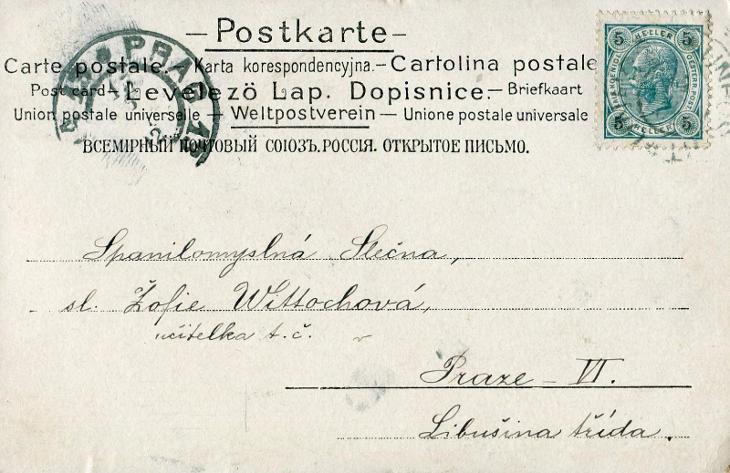 Postkarte
Carte postale. – Karta korespondencyjna. – Cartolina postale
Post card – Levelezö Lap. Dopisnice. – Briefkaart
Union postale universelle – Weltpostverein – Unione postale universale
ВСЕМІРНЫЙ ПОЧТОВЫЙ СОЮЗЪ. РОССІЯ. ОТКРЫТОЕ ПИСЬМО.
PRAG
5 HELLER 5
5 HELLER 5
Spanilomyslná Slečna,
sl. Žofie Wittochová,
učitelka t. č.
Praze – VI.
Libušina třída.